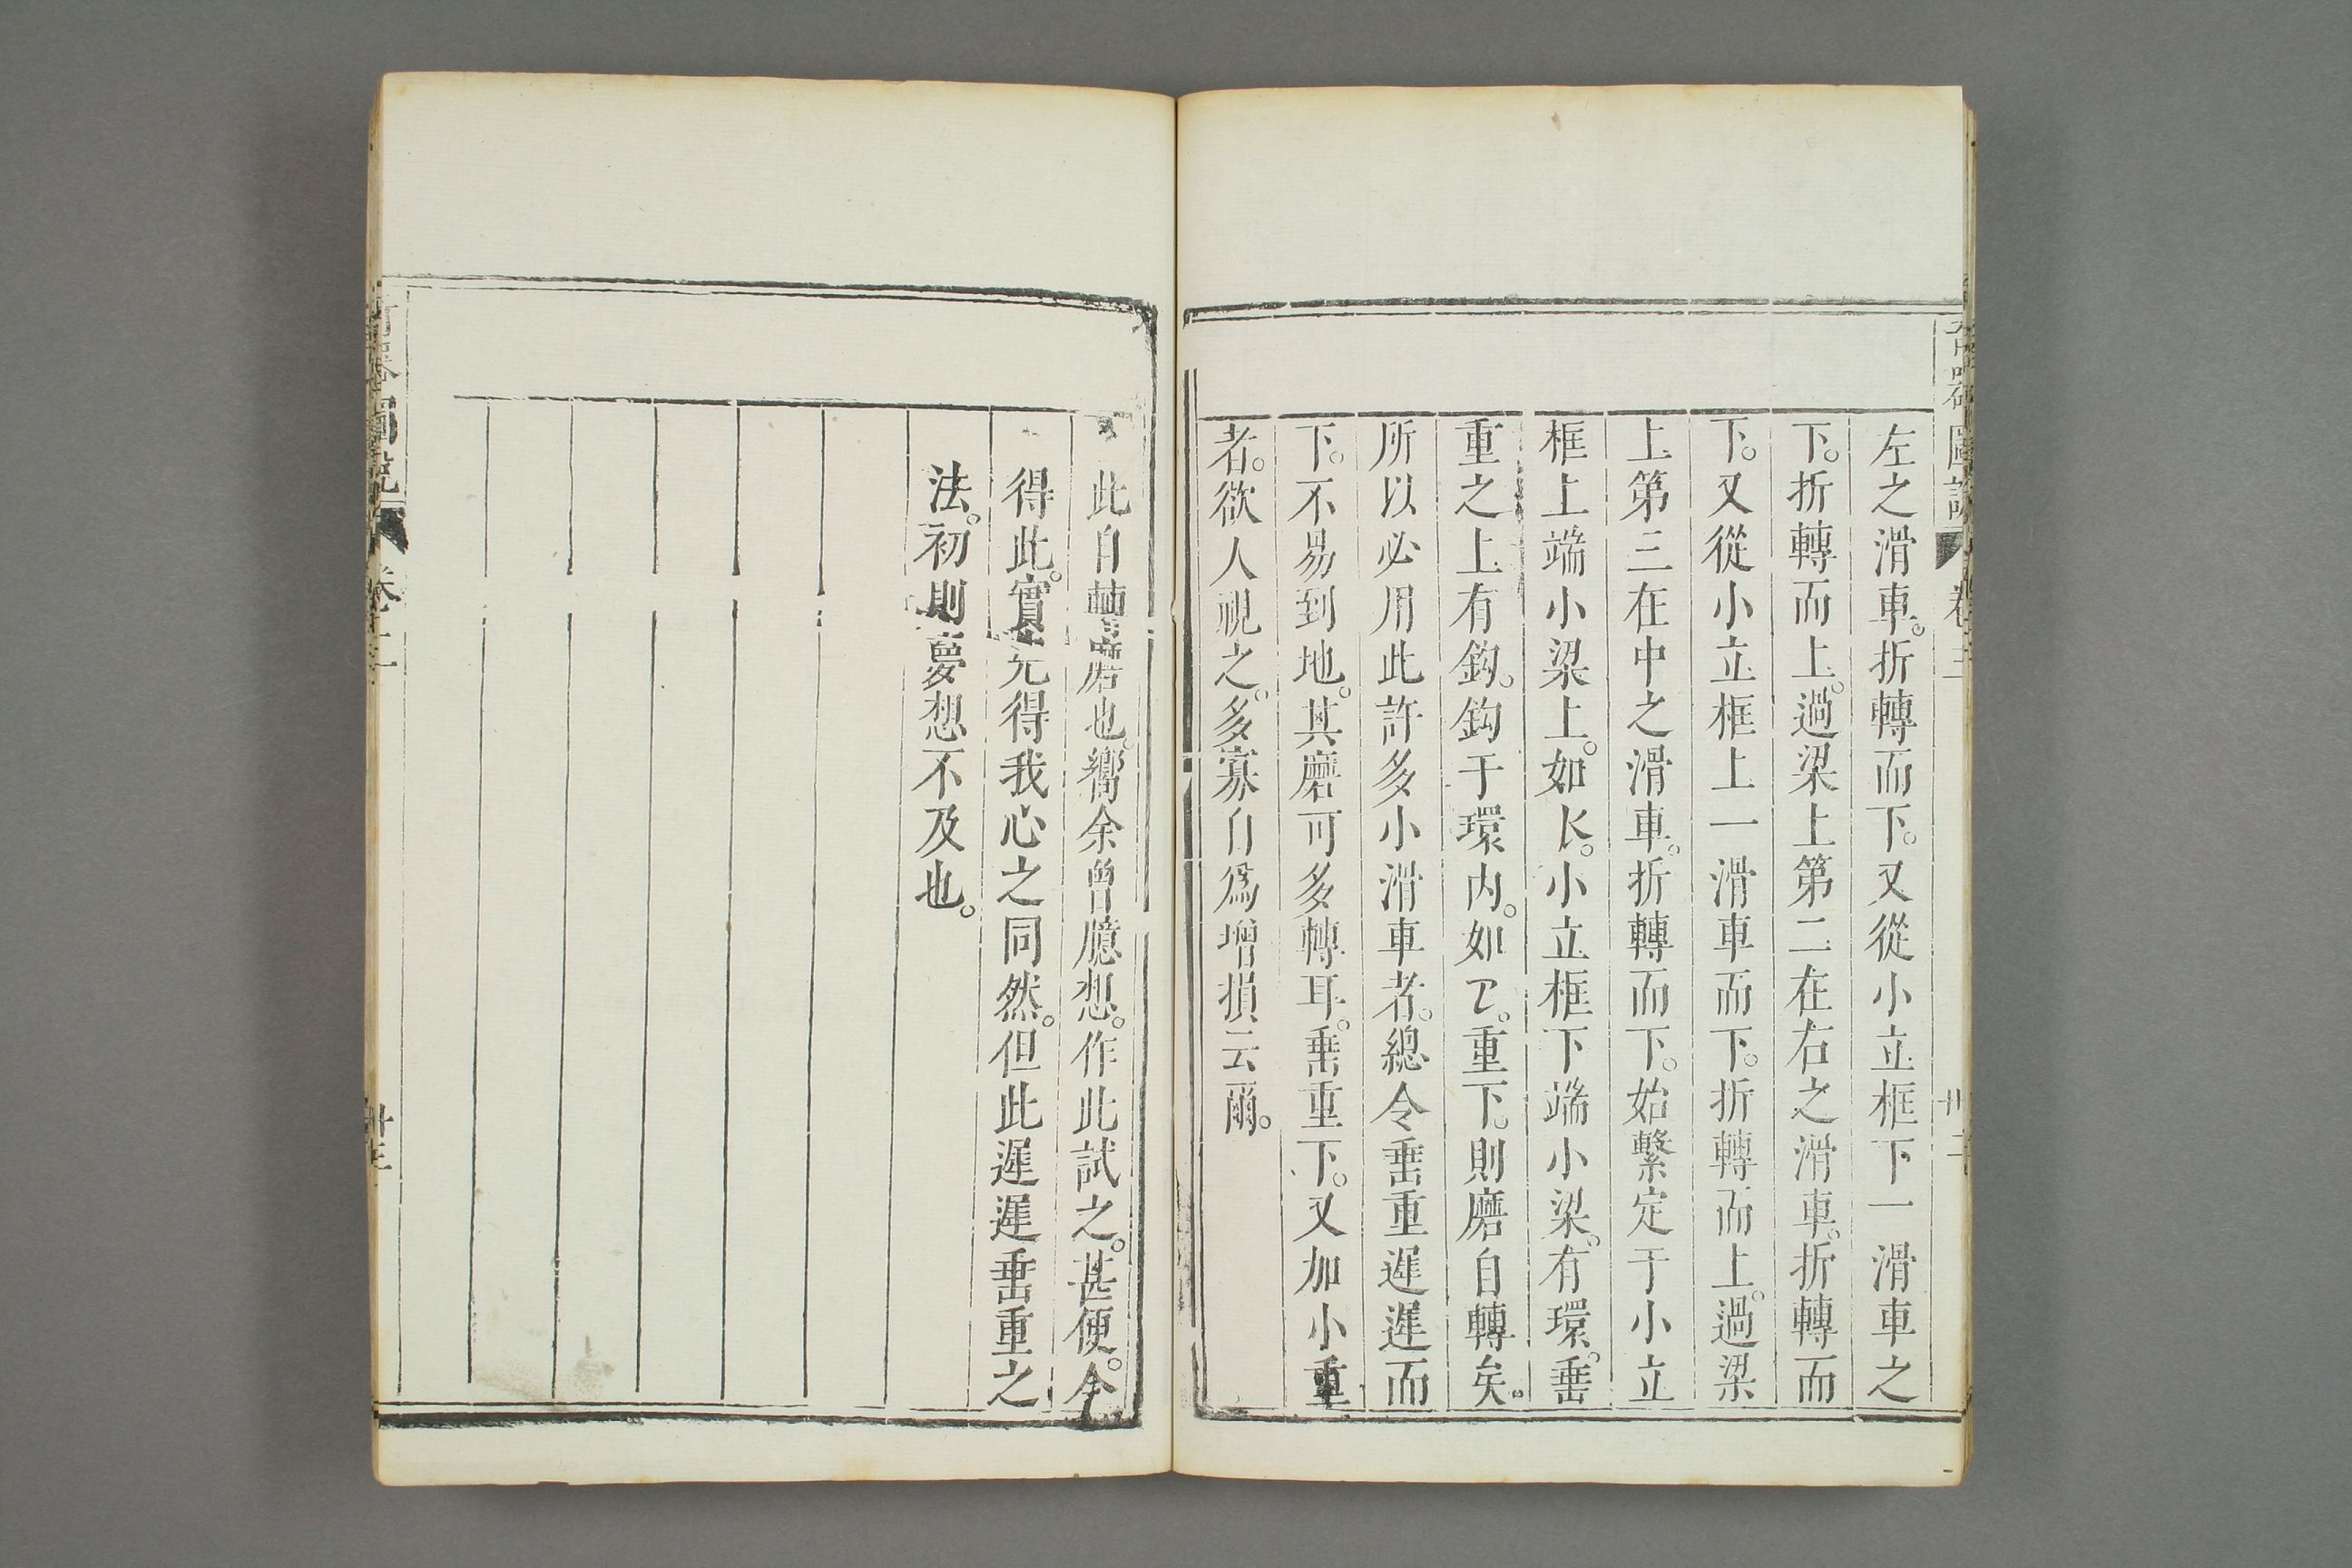 奇器圖說 卷三 卅二
左之滑車。折轉而下。又從小立框下一滑車之
下。折轉而上。過梁上第二在右之滑車。折轉而
下。又從小立框上一滑車而下。折轉而上。過梁
上第三在中之滑車。折轉而下。始繫定于小立
框上端小梁上。如𠄌。小立框下端小梁。有環。垂
重之上有鈎。鈎于環內。如ㄛ。重下。則磨自轉矣。
所以必用此許多小滑車者。總令垂重遲遲而
下。不易到地。其磨可多轉耳。垂重下。又加小重
者。欲人視之。多寡自爲增損云爾。
此自轉磨也。嚮余曾臆想。作此試之。甚便。今
得此。實先得我心之同然。但此遲遲垂重之
法。初則夢想不及也。
奇器圖說 卷三 卅三